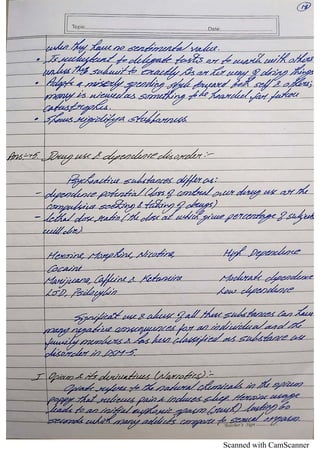 18
Topic
Date
when they have no sentimental value.
• Is reluctant to delegate tasks or to work with others
unless they submit to exactly his or her way of doing things
• Adopts a miserly spending style toward both self & others;
money is viewed as something to be hoarded for future
catastrophes.
• Shows rigidity & stubbornness
Ans:-5. Drug use & dependence disorder:-
Psychoactive substances differ as:
- dependence potential (loss of control over drug use or the
compulsive seeking & taking of drugs)
- lethal dose ratio, (the dose at which given percentage of subjects
will die)
Heroine, Morphine, Nicotine, High Dependence
Cocaine
Marijuana, Caffeine & Ketamine Moderate dependence
LSD, Psilocybin Low dependence
Significant use & abuse of all these substances can have
many negative consequences for an individual and the
family members & has been classified as substance use
disorder in DSM-5.
I Opium & its derivatives (Narcotics):-
Opiate refers to the natural chemicals in the opium
poppy that relieves pain & induces sleep. Heroine usage
leads to an initial euphoric spasm (rush) lasting 60
seconds which many addicts compare to sexual orgasm.
Teacher's Sign
Scanned with CamScanner